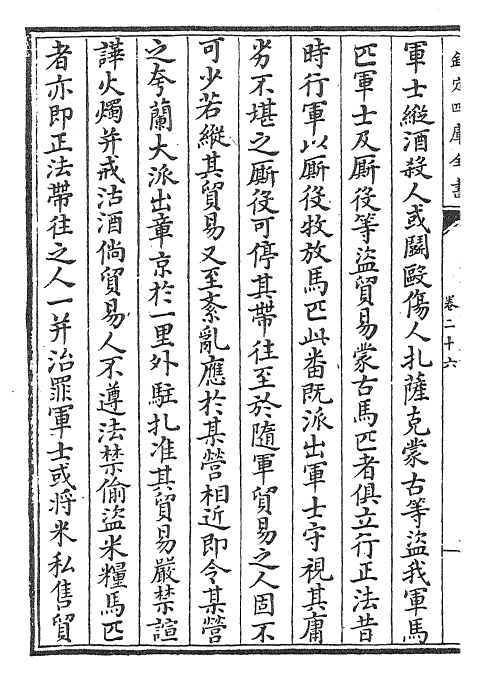 欽定四庫全書
卷二十六
軍士縱酒殺人或鬭毆傷人扎薩克蒙古等盜我軍馬
匹軍士及厮役等盜貿易蒙古馬匹者俱立行正法昔
時行軍以厮役牧放馬匹此畨既派出軍士守視其庸
劣不堪之厮役可停其帶往至於隨軍貿易之人固不
可少若縱其貿易又至紊亂應於某營相近即令某營
之夸蘭大派出章京於一里外駐扎准其貿易嚴禁諠
譁火燭并戒沽酒倘貿易人不遵法禁偷盜米糧馬匹
者亦即正法帶往之人一并治罪軍士或将米私售貿